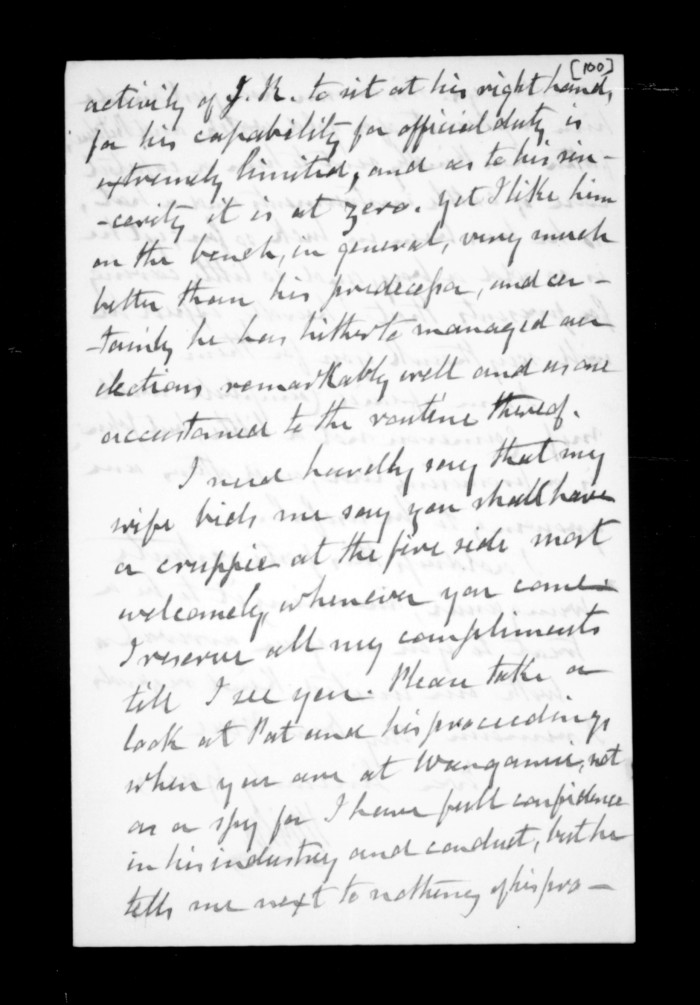 [100]
activity of J. R. to sit at his right hand,
for his capability for official duty is
extremely limited, and as to his sin-
-cerity it is at zero. Yet I like him
on the bench, in general, very much
better than his predecessor, and cer-
-tainly he has hitherto managed our
elections remarkably well and as one
accustomed to the routine thereof.
I need hardly say that my
wife bids me say you shall have
a cruppie at the fire side most
welcomely, whenever you come
I reserve all my compliments
till I see you. Please take a
look at Pat and his proceedings
when you are at Wanganui, not
as a spy for I have full confidence
in his industry and conduct, but he
tells me next to nothing of his pro-